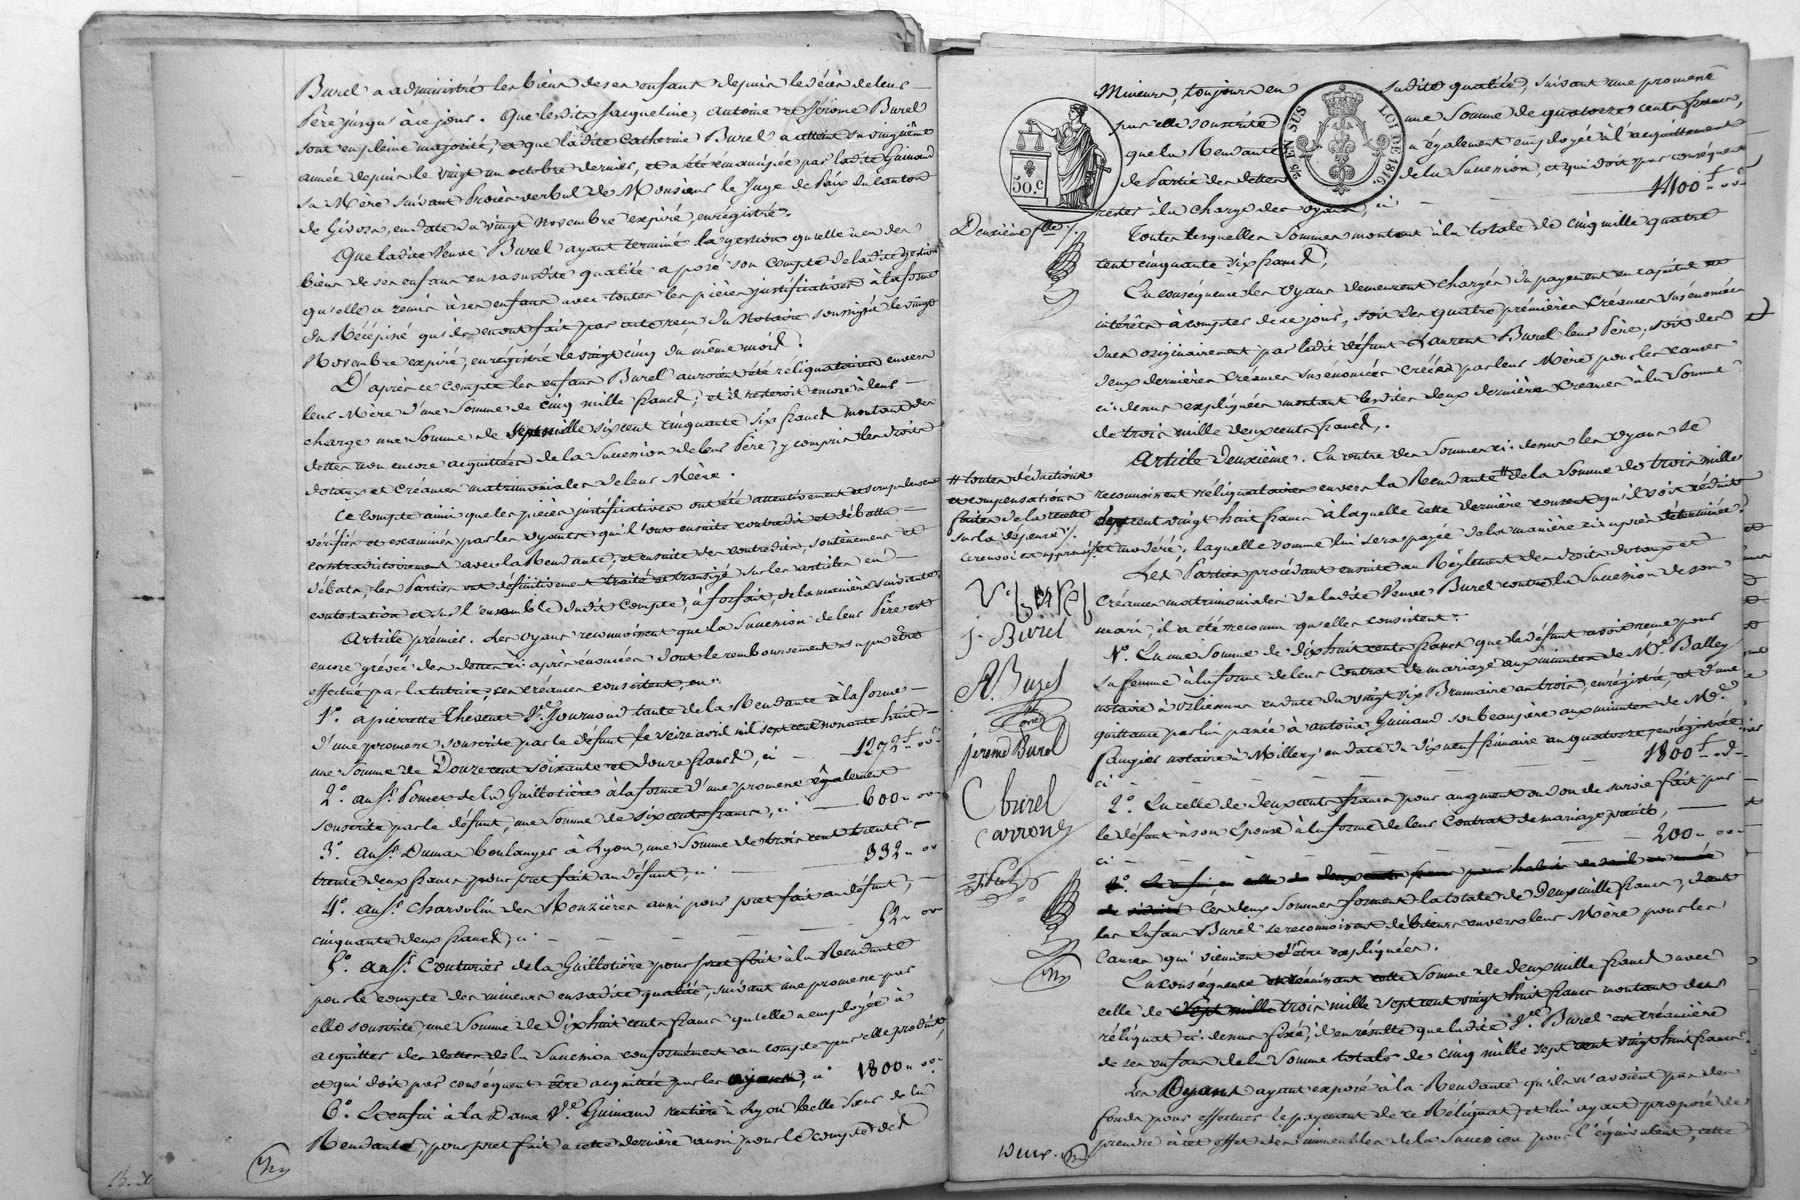 Burel a administré les biens de ses enfans depuis le décès de leur
Père jusqu'à ce jour. Que lesdits Jacqueline, Antoine et Jérome Burel
sont en pleine majorité, et que ladite Catherine Burel a atteint sa vingtième
année depuis le vingt un octobre dernier, et a été émancipée par ladite Guinand
sa Mère suivant Procès verbal de Monsieur le Juge de Paix du canton
de Givors, en date du vingt novembre expiré, enrégistré.
Que ladite Veuve Burel ayant terminé la gestion qu'elle a eu des
biens de ses enfans en sa susdite qualité a posé son compte de ladite gestion
qu'elle a remis à ses enfans avec toutes les pièces justificatives à la forme
du Récépissé qu'ils en ont fait par acte reçu du Notaire soussigné le vingt
Novembre expiré, enrégistré le vingt cinq du même mois.
D'après ce compte les enfans Burel auroient été réliquataires envers
leur Mère d'une Somme de cinq mille francs; et il resteroit encore à leur
charge une Somme de sept mille six cent cinquante six francs montant des
dettes non encore acquittées de la Succession de leur Père, y compris les droits
dotaux et créances matrimoniales de leur Mère.
Ce compte ainsi que les pièces justificatives ont été attentivement et scrupuleusement
vérifiés et examinés par les oyants qui l'ont ensuite contredit et débattu
contradictoirement avec la Rendante, et ensuite des contredits, soutènemens et
débats, les Parties ont définitivement traité et transigé sur les articles en
contestation et sur l'ensemble dudit compte, à forfait, de la manière suivante.
Article prémier. Les oyans reconnoissent que la Succession de leur Père est
encore grévée des dettes ci après énoncées dont le remboursement n'a pu être
effectué par la tutrice, ces créances consistent, en:
1°. à pierrette Thevenet Vve. Journoud tante de la Rendante à la forme
d'une promesse souscrite par le défunt le seize avril mil sept cent nonante huit
une Somme de Douze cent soixante et douze francs, ci 1272 f " 00 c
2°. au Sr. Pomet de la Guillotière à la forme d'une promesse également
souscrite par le défunt, une Somme de six cents francs, ci 600 " 00
3°. au Sr. Dumas boulanger à Lyon, une Somme de trois cent trente
trente deux francs pour pret fait au défunt, ci 332 " 00
4°. au Sr. Charvolin des Rouzières aussi pour pret fait au défunt,
cinquante deux francs, ci 52 " 00
5°. au Sr. Couturier de la Guillotière pour pret fait à la Rendante
pour le compte des mineurs en sadite qualité, suivant une promesse par
elle souscrite, une Somme de Dix huit cents francs qu'elle a employée à
acquitter des dettes de la Succession conformément au compte par elle produit,
et qui doit par conséquent être acquittée par les oyants, ci 1800 " 00
6°. Et enfin à la Dame Vve. Guinand rentière à Lyon belle Sœur de la
Rendante, pour pret fait à cette dernière aussi pour le compte des
Mineurs, toujours en sadite qualité, suivant une promesse
par elle souscrite une Somme de quatorze cents francs,
que la Rendante a également employée à l'acquittement
de Partie des dettes de la Succession, et qui doit par conséquent
rester à la charge des oyans, ci 1400 f " 00 c
50.c
EN SUS
LOI DE 1816.
Deuxième
Toutes lesquelles Sommes montent à la totale de cinq mille quatre
cent cinquante six francs,
En conséquence les oyans demeurent chargés du payement en capital et
intérêts à compter de ce jour, soit des quatre prémières créances susénoncées
dues originairement par ledit défunt Laurent Burel leur Père, soit des
deux dernières créances susénoncées créées par leur Mère pour les causes
ci-dessus expliquées montant lesdites deux dernières créances à la Somme
de trois mille deux cents francs.
Article deuxième. En outre des Sommes ci-dessus les oyans se
reconnoissent réliquataires envers la Rendante # de la Somme de trois mille
sept cent vingt huit francs à laquelle cette dernière consent qu'il soit réduit
et modéré; laquelle somme lui sera payée de la manière ci après déterminée.
# toutes déductions
et compensations
faites de la recette
sur la dépense
ce renvoi est approuvé
J. Burel
A. Burel
jerome Burel
C burel
carron
Les Parties procédant ensuite au Réglement des droits dotaux et
Créances matrimoniales de ladite Veuve Burel contre la Succession de son
mari, il a été reconnu qu'elles consistent:
1°. En une Somme de dix huit cents francs que le défunt avoit reçue pour
sa femme à la forme de leur Contrat de mariage aux minutes de Me. Balley
notaire à Orliénas en date du vingt six Brumaire an trois, enrégistré, et d'une
quittance par lui passée à antoine Guinand son beaupère aux minutes de Me.
faugier notaire à Millery en date du dix neuf frimaire an quatorze, enrégistrée
ci 1800 f " 00
2°. En celle de deux cents francs pour augment ou don de survie fait par
le défunt à son Epouse à la forme de leur Contrat de mariage précité,
ci 200 " 00
Ces deux Sommes forment la totale de Deux mille francs, dont
les Enfans Burel se reconnoissent débiteurs envers leur Mère pour les
causes qui viennent d'être expliquées.
En conséquence et réunissant cette Somme de deux mille francs avec
celle de trois mille sept cent vingt huit francs montant du
réliquat ci-dessus fixé, il en résulte que ladite Vve. Burel est créancière
de ses enfans de la Somme totale de cinq mille sept cent vingt huit francs.
Les Oyant ayant exposé à la Rendante qu'ils n'avoient pas des
fonds pour effectuer le payement de ce Réliquat, et lui ayant proposé de
prendre à cet effet des immeubles de la Succession pour l'équivalent, cette